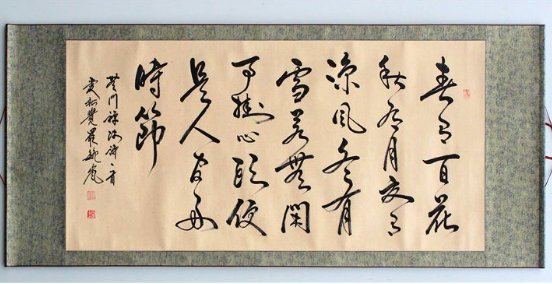 春有百花
秋有月夏有
涼風冬有
雪若無閑
事掛心頭便
是人間好
時節
愛新覺羅